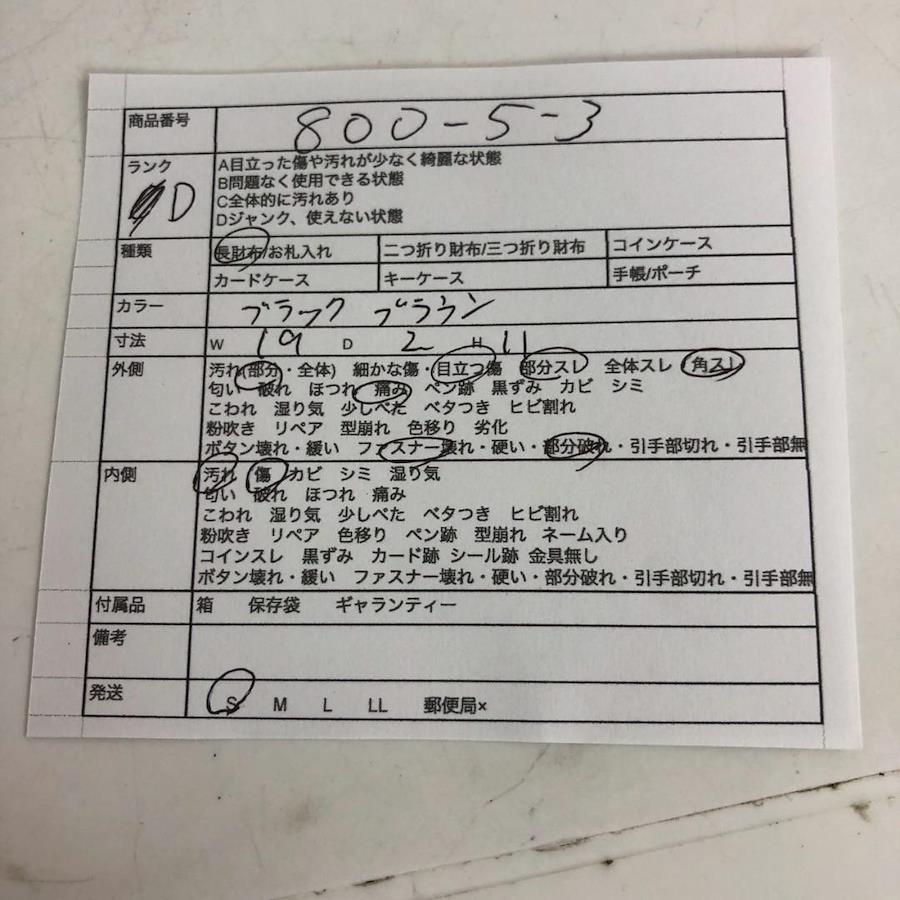 商品番号 800-5-3
ランク D
A目立った傷や汚れが少なく綺麗な状態
B問題なく使用できる状態
C全体的に汚れあり
Dジャンク、使えない状態
種類 長財布/お札入れ 二つ折り財布/三つ折り財布 コインケース
カードケース キーケース 手帳/ポーチ
カラー ブラック ブラウン
寸法 W 19 D 2 H 11
外側 汚れ(部分・全体) 細かな傷・目立つ傷 部分スレ 全体スレ 角スレ
匂い 破れ ほつれ 痛み ペン跡 黒ずみ カビ シミ
こわれ 湿り気 少しべた ベタつき ヒビ割れ
粉吹き リペア 型崩れ 色移り 劣化
ボタン壊れ・緩い ファスナー壊れ・硬い・部分破れ・引手部切れ・引手部無
内側 汚れ 傷 カビ シミ 湿り気
匂い 破れ ほつれ 痛み
こわれ 湿り気 少しべた ベタつき ヒビ割れ
粉吹き リペア 色移り ペン跡 型崩れ ネーム入り
コインスレ 黒ずみ カード跡 シール跡 金具無し
ボタン壊れ・緩い ファスナー壊れ・硬い・部分破れ・引手部切れ・引手部無
付属品 箱 保存袋 ギャランティー
備考
発送 S M L LL 郵便局×